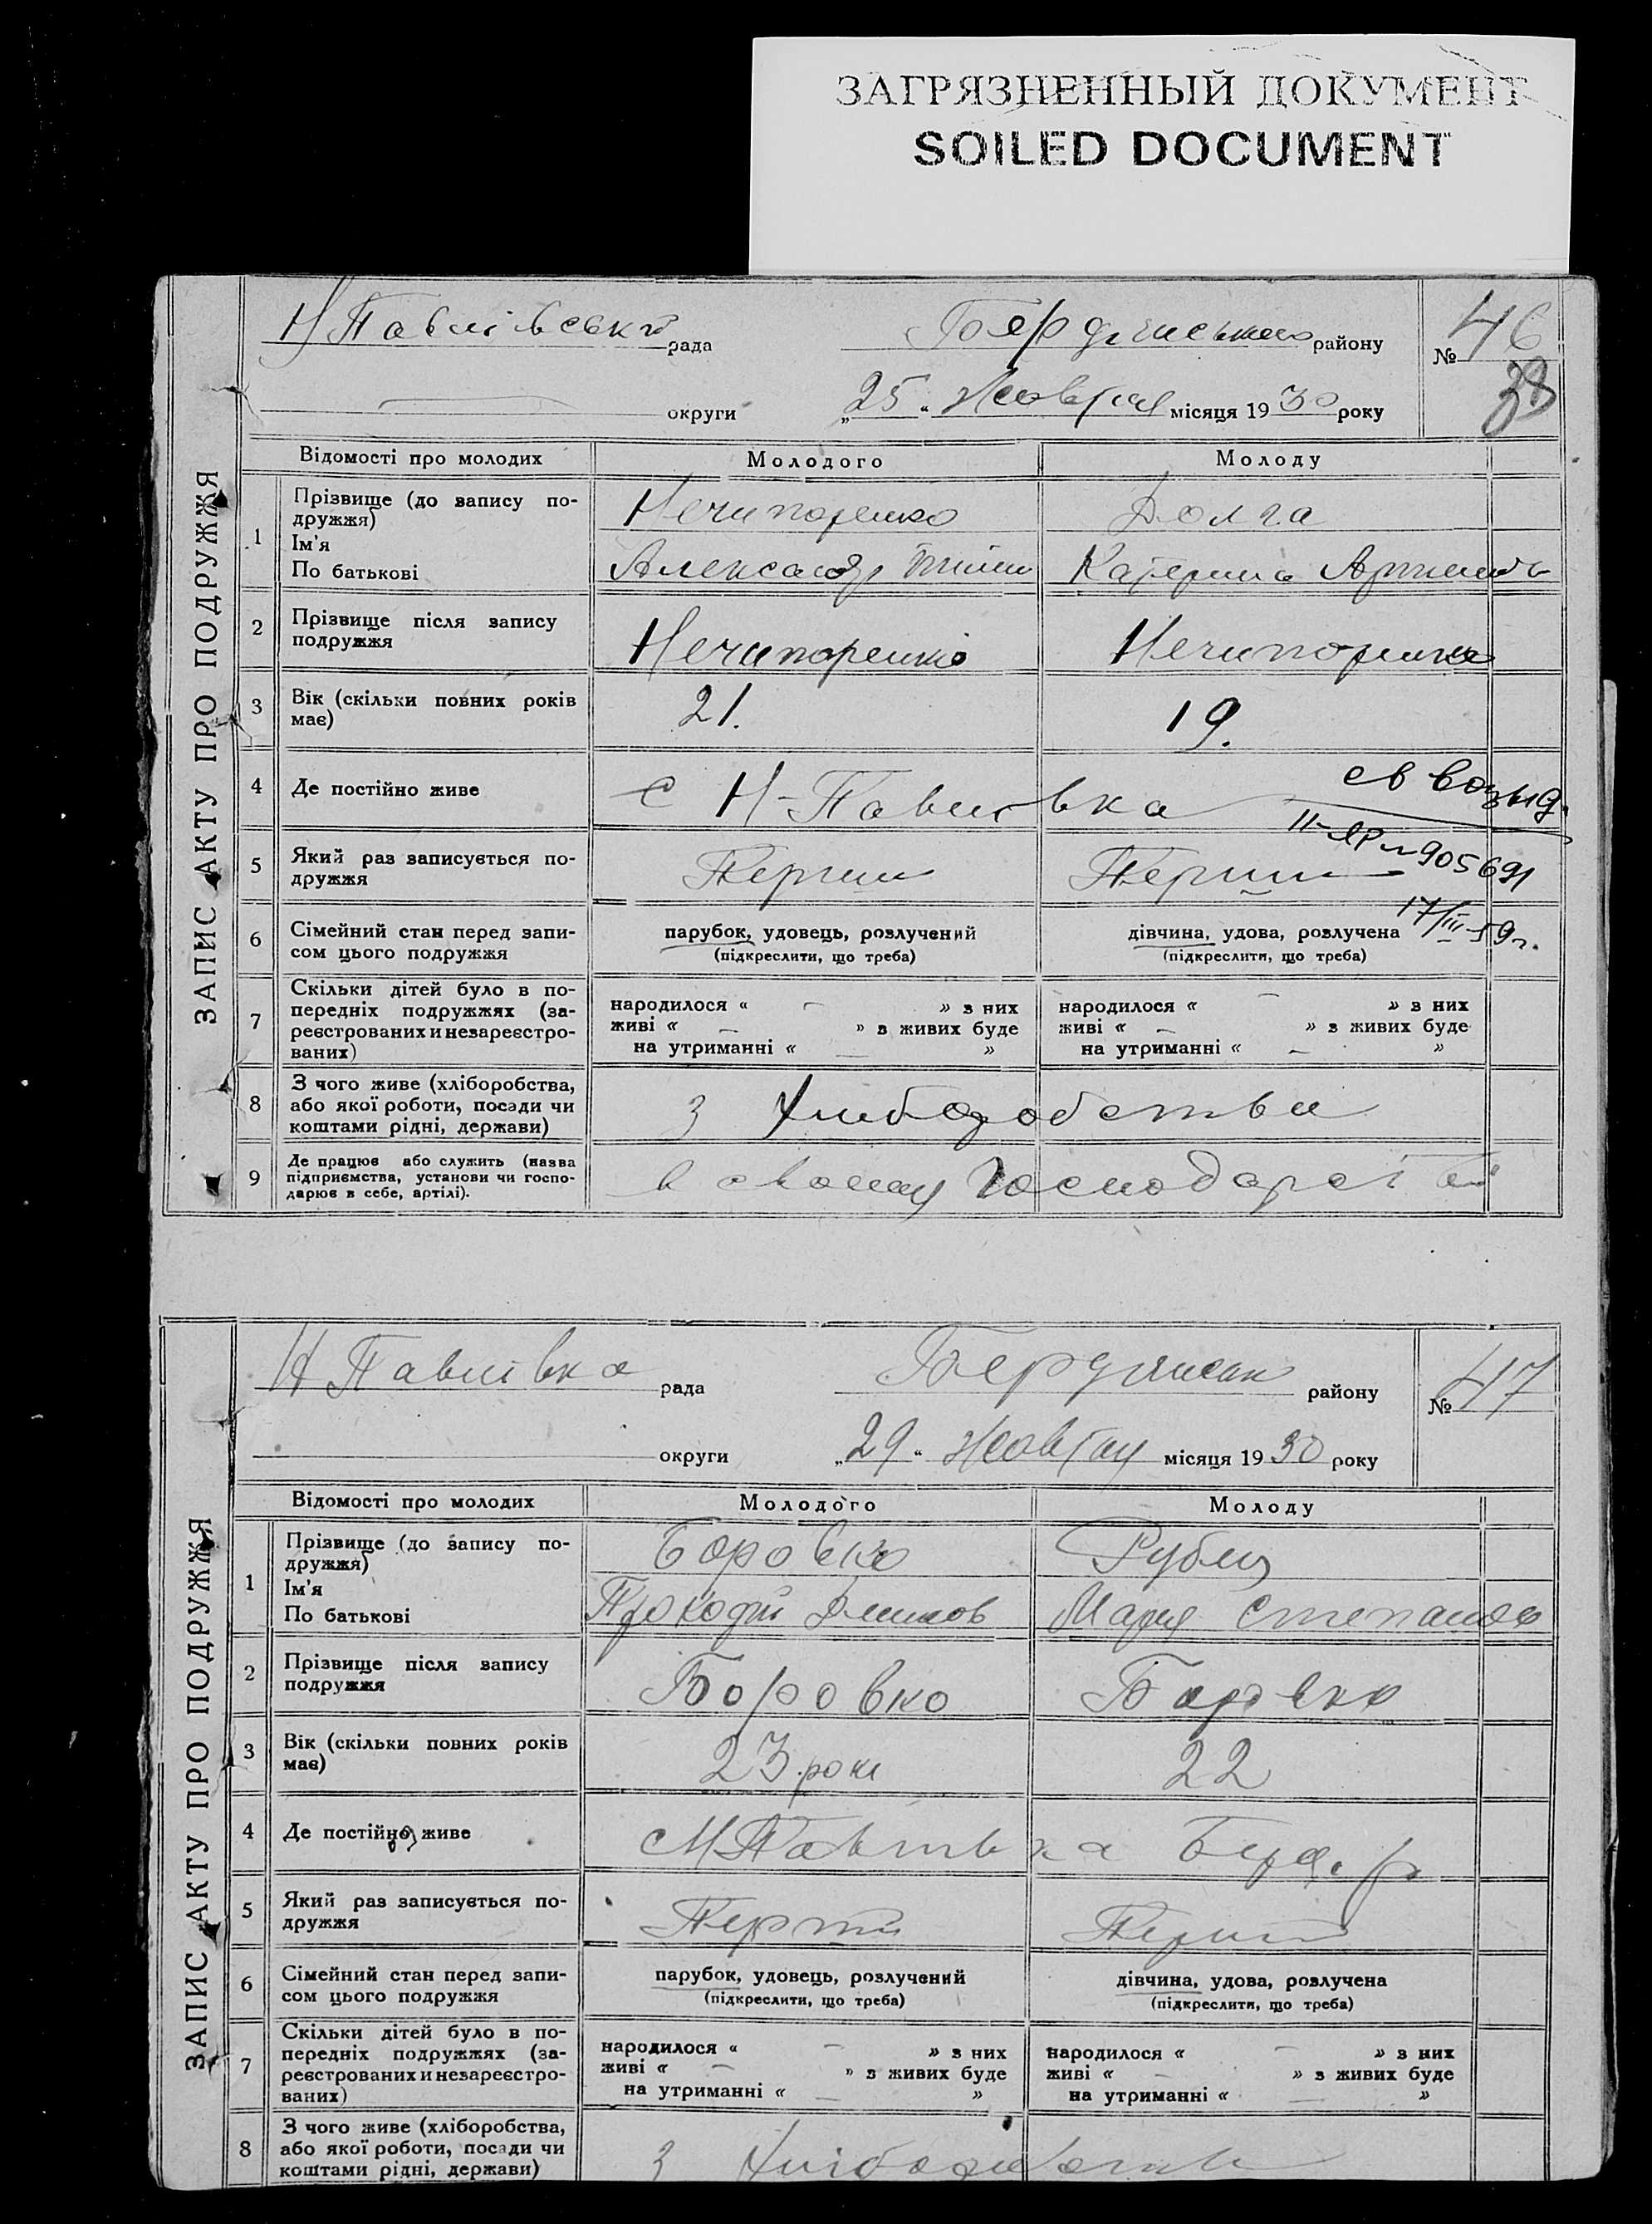 ЗАГРЯЗНЕННЫЙ ДОКУМЕНТ
SOILED DOCUMENT
ЗАПИС АКТУ ПРО ПОДРУЖЖЯ
Н Павлівська рада Бердянського району № 46
38
округи „25“ Жовтня місяця 1930 року
Відомості про молодих Молодого Молоду
1 Прізвище (до запису по-
дружжя) Нечипоренко Долга
Ім'я
По батькові Александр Катерина
2 Прізвище після запису
подружжя Нечипоренко Нечипоренко
3 Вік (скільки повних років
має) 21. 19.
4 Де постійно живе с Н-Павлівка
св выд.
II-ЯР № 905691
17/III-59г.
5 Який раз записується по-
дружжя Перший Перший
6 Сімейний стан перед запи-
сом цього подружжя парубок, удовець, розлучений дівчина, удова, розлучена
(підкреслити, що треба) (підкреслити, що треба)
7 Скільки дітей було в по-
передніх подружжях (за-
реєстрованих и незареєстро-
ваних)
народилося « — » з них народилося « — » з них
живі « — » з живих буде живі « — » з живих буде
на утриманні « — » на утриманні « — »
8 З чого живе (хліборобства,
або якої роботи, посади чи
коштами рідні, держави) З Хліборобства
9 Де працює або служить (назва
підприємства, установи чи госпо-
дарює в себе, артілі). в своему господарстві
ЗАПИС АКТУ ПРО ПОДРУЖЖЯ
Н Павлівка рада Бердянськ району № 47
округи „29“ Жовтня місяця 1930 року
Відомості про молодих Молодого Молоду
1 Прізвище (до запису по-
дружжя) Боровко Рубец
Ім'я
По батькові Прокофій Мария Степанов
2 Прізвище після запису
подружжя Боровко Боровко
3 Вік (скільки повних років
має) 23 роки 22
4 Де постійно живе с Н Павлівка Берд. р
5 Який раз записується по-
дружжя Перший Перший
6 Сімейний стан перед запи-
сом цього подружжя парубок, удовець, розлучений дівчина, удова, розлучена
(підкреслити, що треба) (підкреслити, що треба)
7 Скільки дітей було в по-
передніх подружжях (за-
реєстрованих и незареєстро-
ваних)
народилося « — » з них народилося « — » з них
живі « — » з живих буде живі « — » з живих буде
на утриманні « — » на утриманні « — »
8 З чого живе (хліборобства,
або якої роботи, посади чи
коштами рідні, держави) З Хліборобства